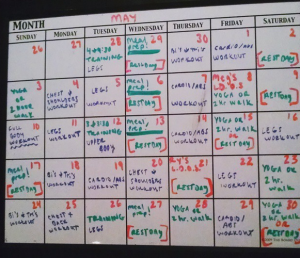 MONTH MAY
SUNDAY MONDAY TUESDAY WEDNESDAY THURSDAY FRIDAY SATURDAY
26 27 28 29 30 1 2
TRAINING
LEGS
meal prep!
[REST DAY]
BI'S & TRI'S
WORKOUT
CARDIO/ABS
WORKOUT
[REST DAY]
3 4 5 6 7 8 9
YOGA
OR
2 HOUR
WALK
CHEST &
SHOULDERS
WORKOUT
LEGS
WORKOUT
meal
prep!
[REST DAY]
CARDIO/ABS
WORKOUT
YOGA OR
2 hr. WALK
[REST DAY]
10 11 12 13 14 15 16
FULL
BODY
WORKOUT
LEGS
WORKOUT
TRAINING
UPPER
BODY
meal
prep!
[REST DAY]
CARDIO/ABS
WORKOUT
YOGA OR
2 hr. WALK
[REST DAY]
LEGS
WORKOUT
17 18 19 20 21 22 23
meal
prep!
[REST DAY]
BI'S & TRI'S
WORKOUT
CARDIO/ABS
WORKOUT
CHEST &
SHOULDERS
WORKOUT
[REST DAY]
LEGS
WORKOUT
YOGA OR
2 hr.
WALK
24 25 26 27 28 29 30
BI'S & TRI'S
WORKOUT
CHEST &
BACK
WORKOUT
TRAINING
LEGS
meal
prep!
[REST DAY]
YOGA OR
2 hr. WALK
CARDIO/
ABS
WORKOUT
YOGA OR
2 hr. WALK
OR
[REST DAY]